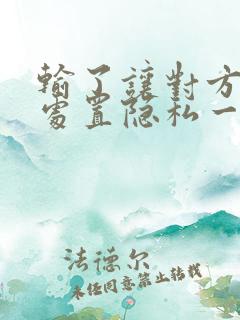 輸了讓對方
處置隐私一
法德尔
未经同意禁止转载